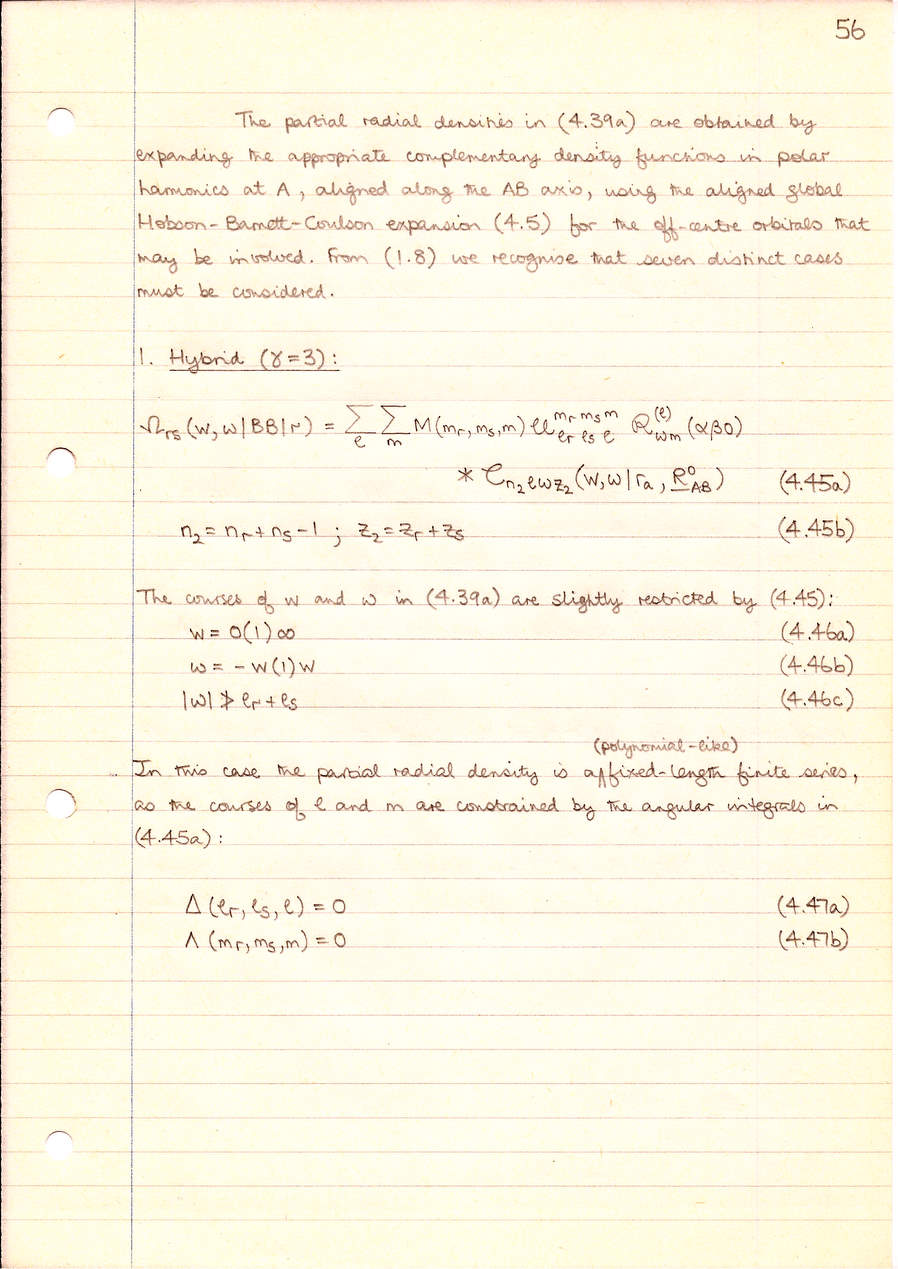 56
The partial radial densities in (4.39a) are obtained by
expanding the appropriate complementary density functions in polar
harmonics at A, aligned along the AB axis, using the aligned global
Hobson-Barnett-Coulson expansion (4.5) for the off-centre orbitals that
may be involved. From (1.8) we recognise that seven distinct cases
must be considered.
1. Hybrid (γ=3):
Ω_rs (w, ω|BB|r) = Σ_ℓ Σ_m M(m_r, m_s, m) 𝒰^{m_r m_s m}_{ℓ_r ℓ_s ℓ} ℛ^{(ℓ)}_{ωm} (αβ0)
* 𝒞_{n₂ℓωz₂} (w, ω|r_a, R⁰_AB) (4.45a)
n₂ = n_r + n_s - 1 ; z₂ = z_r + z_s (4.45b)
The courses of w and ω in (4.39a) are slightly restricted by (4.45):
w = 0(1)∞ (4.46a)
ω = -w(1)w (4.46b)
|ω| ≯ ℓ_r + ℓ_s (4.46c)
(polynomial-like)
In this case the partial radial density is a fixed-length finite series,
as the courses of ℓ and m are constrained by the angular integrals in
(4.45a):
Δ(ℓ_r, ℓ_s, ℓ) = 0 (4.47a)
Λ(m_r, m_s, m) = 0 (4.47b)